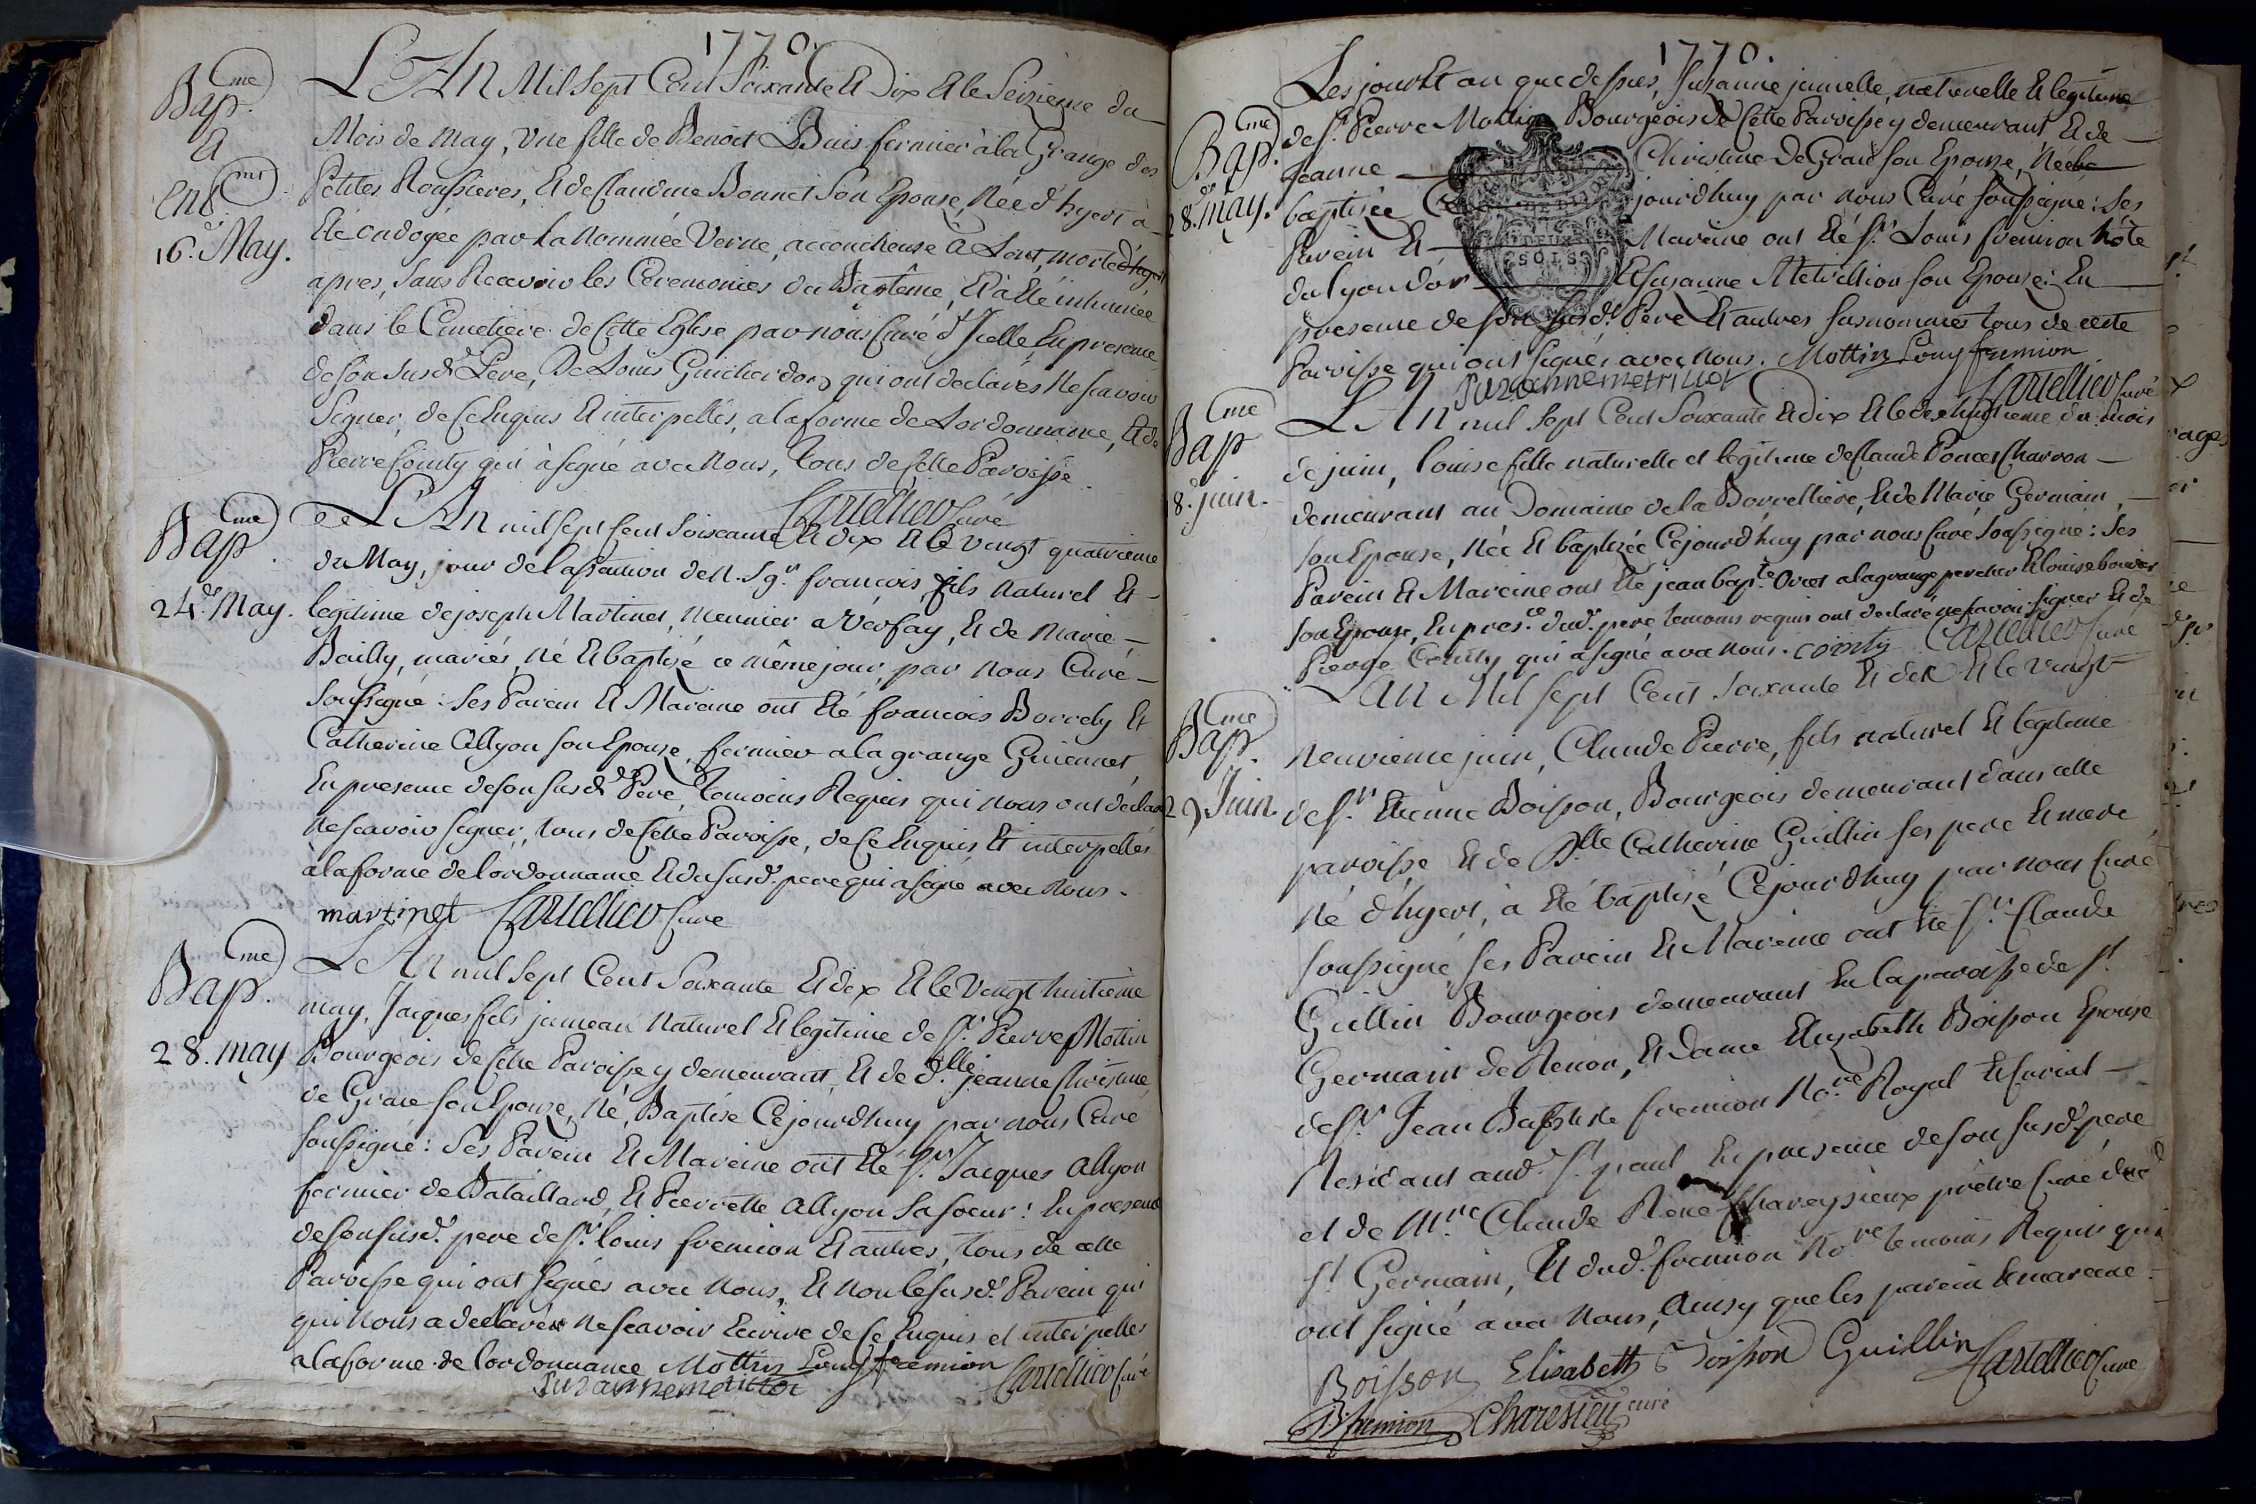 1770.
Bap.me
Et
Ent.mt
16.e May.
L'An Mil Sept Cent Soixante Et Dix Et le Seizieme du
Mois de may, Une fille de Benoit Buis fermier à la Grange des
Petites Roussieres, Et de Claudine Bonnet Son Epouse, Née d'hyert à
Eté ondoyée par la Nommée Verne, accoucheuse à Lent, morte d'hyert
apres, Sans Recevoir les Ceremonies du Baptême, Et a Eté inhumée
dans le Cimetiere de Cette Eglise par nous Curé d'Icelle En presence
de Son Susd. Pere, De Louis Guicherdon qui ont declarés Ne Scavoir
Signer, de Ce Enquis Et interpellés, a la forme de Lordonnance, Et de
Pierre Cointy qui à Signé avec Nous, Tous de Cette Paroisse.
Cartellier Curé
Bap.me
24.e May.
L'An mil Sept Cent Soixante Et dix Et le Vingt quatrieme
du May, jour de lassention de N. Sgr. françois fils naturel Et
legitime de joseph Martinet, Meunier a Verfay, Et de Marie
Bailly, mariés, Né Et baptisé ce même jour, par nous Curé
Soussigné : Ses Parein Et Mareine ont Eté françois Borrely Et
Catherine Allyon Son Epouse, fermier a la grange Guiennet,
En presence de son Susd. Pere, Temoins Requis qui nous ont declaré
Ne Scavoir Signer, tous de Cette Paroisse, de Ce Enquis Et interpellés
à la forme de lordonnance Et du Susd. pere qui a Signé avec Nous.
martinet Cartellier Curé
Bap.me
28. may
L'An mil Sept Cent Soixante Et dix Et le Vingt huitieme
may, Jacques fils jumeau Naturel Et legitime de Sr. Pierre Mottin
Bourgeois de Cette Paroisse y demeurant, Et de d.lle jeanne Christine
de Grane Son Epouse, Né, Baptisé Cejourdhuy par nous Curé
Soussigné : Ses Parein Et Mareine ont Eté Sr. Jacques Allyon
fermier de Bataillard, Et Pierrette Allyon Sa Soeur : En presence
de Son Susd. pere de Sr. louis fremion Et autres, tous de cette
Paroisse qui ont Signés avec Nous, Et Non le Susd. Parein qui
qui Nous a declarés Ne Scavoir Ecrire de Ce Enquis et interpellés
a la forme de lordonnance Mottin Louy fremion
Suzannemetrillot Cartellier Curé
1770.
Bap.me
28.e may.
Les jour Et an que dessus, Suzanne jumelle, naturelle Et legitime
de Sr. Pierre Mottin Bourgeois de Cette Paroisse y demeurant Et de
Jeanne Christine De Grane Son Epouse, Née Et
baptisée Ce jourdhuy par nous Curé Soussigné : Ses
Parein Et Mareine ont Eté Sr. Louis fremion hôte
du lyon d'or Et Suzanne Metrillion Son Epouse : En
presence de Son Susd. Pere Et autres Susnommés tous de cette
Paroisse qui ont Signés avec Nous. Mottin Louy fremion
Suzannemetrillot Cartellier Curé
DEUX
SOLS
Bap.me
8.e juin.
L'An mil Sept Cent Soixante Et dix Et le huitieme du mois
de juin, louise fille naturelle et legitime de Claude Poncet Charron
demeurant au Domaine de la Borrelliere, Et de Marie Germain
Son Epouse, Née Et baptisée Cejourdhuy par nous Curé Soussigné : Ses
Parein Et Mareine ont Eté jean bap.te a la grange percher Et louise bouvier
Son Epouse, En pres.ce dud. pere temoins requis ont declaré ne Scavoir Signer Et de
Pierre Cointy qui a Signé avec Nous. cointy Cartellier Curé
Bap.me
29 Juin.
L'An Mil Sept Cent Soixante Et dix Et le Vingt
Neuvieme juin, Claude Pierre, fils naturel Et legitime
de Sr. Etienne Boisson, Bourgeois demeurant dans cette
paroisse Et de D.lle Catherine Guillin Ses pere Et mere
Né d'hyert, à Eté baptisé Cejourdhuy par nous Curé
Soussigné, Ses Parein Et Mareine ont Eté Sr. Claude
Guillin Bourgeois demeurant En la paroisse de St.
Germain de Renon, Et Dame Elizabeth Boisson Epouse
de Sr. Jean Baptiste fremion No.re Royal
Residant aud. St. paul En presence de Son Susd. pere
et de M.re Claude René Chareysieux prêtre Curé dud.
St. Germain, Et dud. fremion No.re temoins Requis qui
ont Signé avec Nous, Ainsy que les parein Et mareine.
Boisson Elisabeth Boisson Guillin Cartellier Curé
fremion Charesieu curé